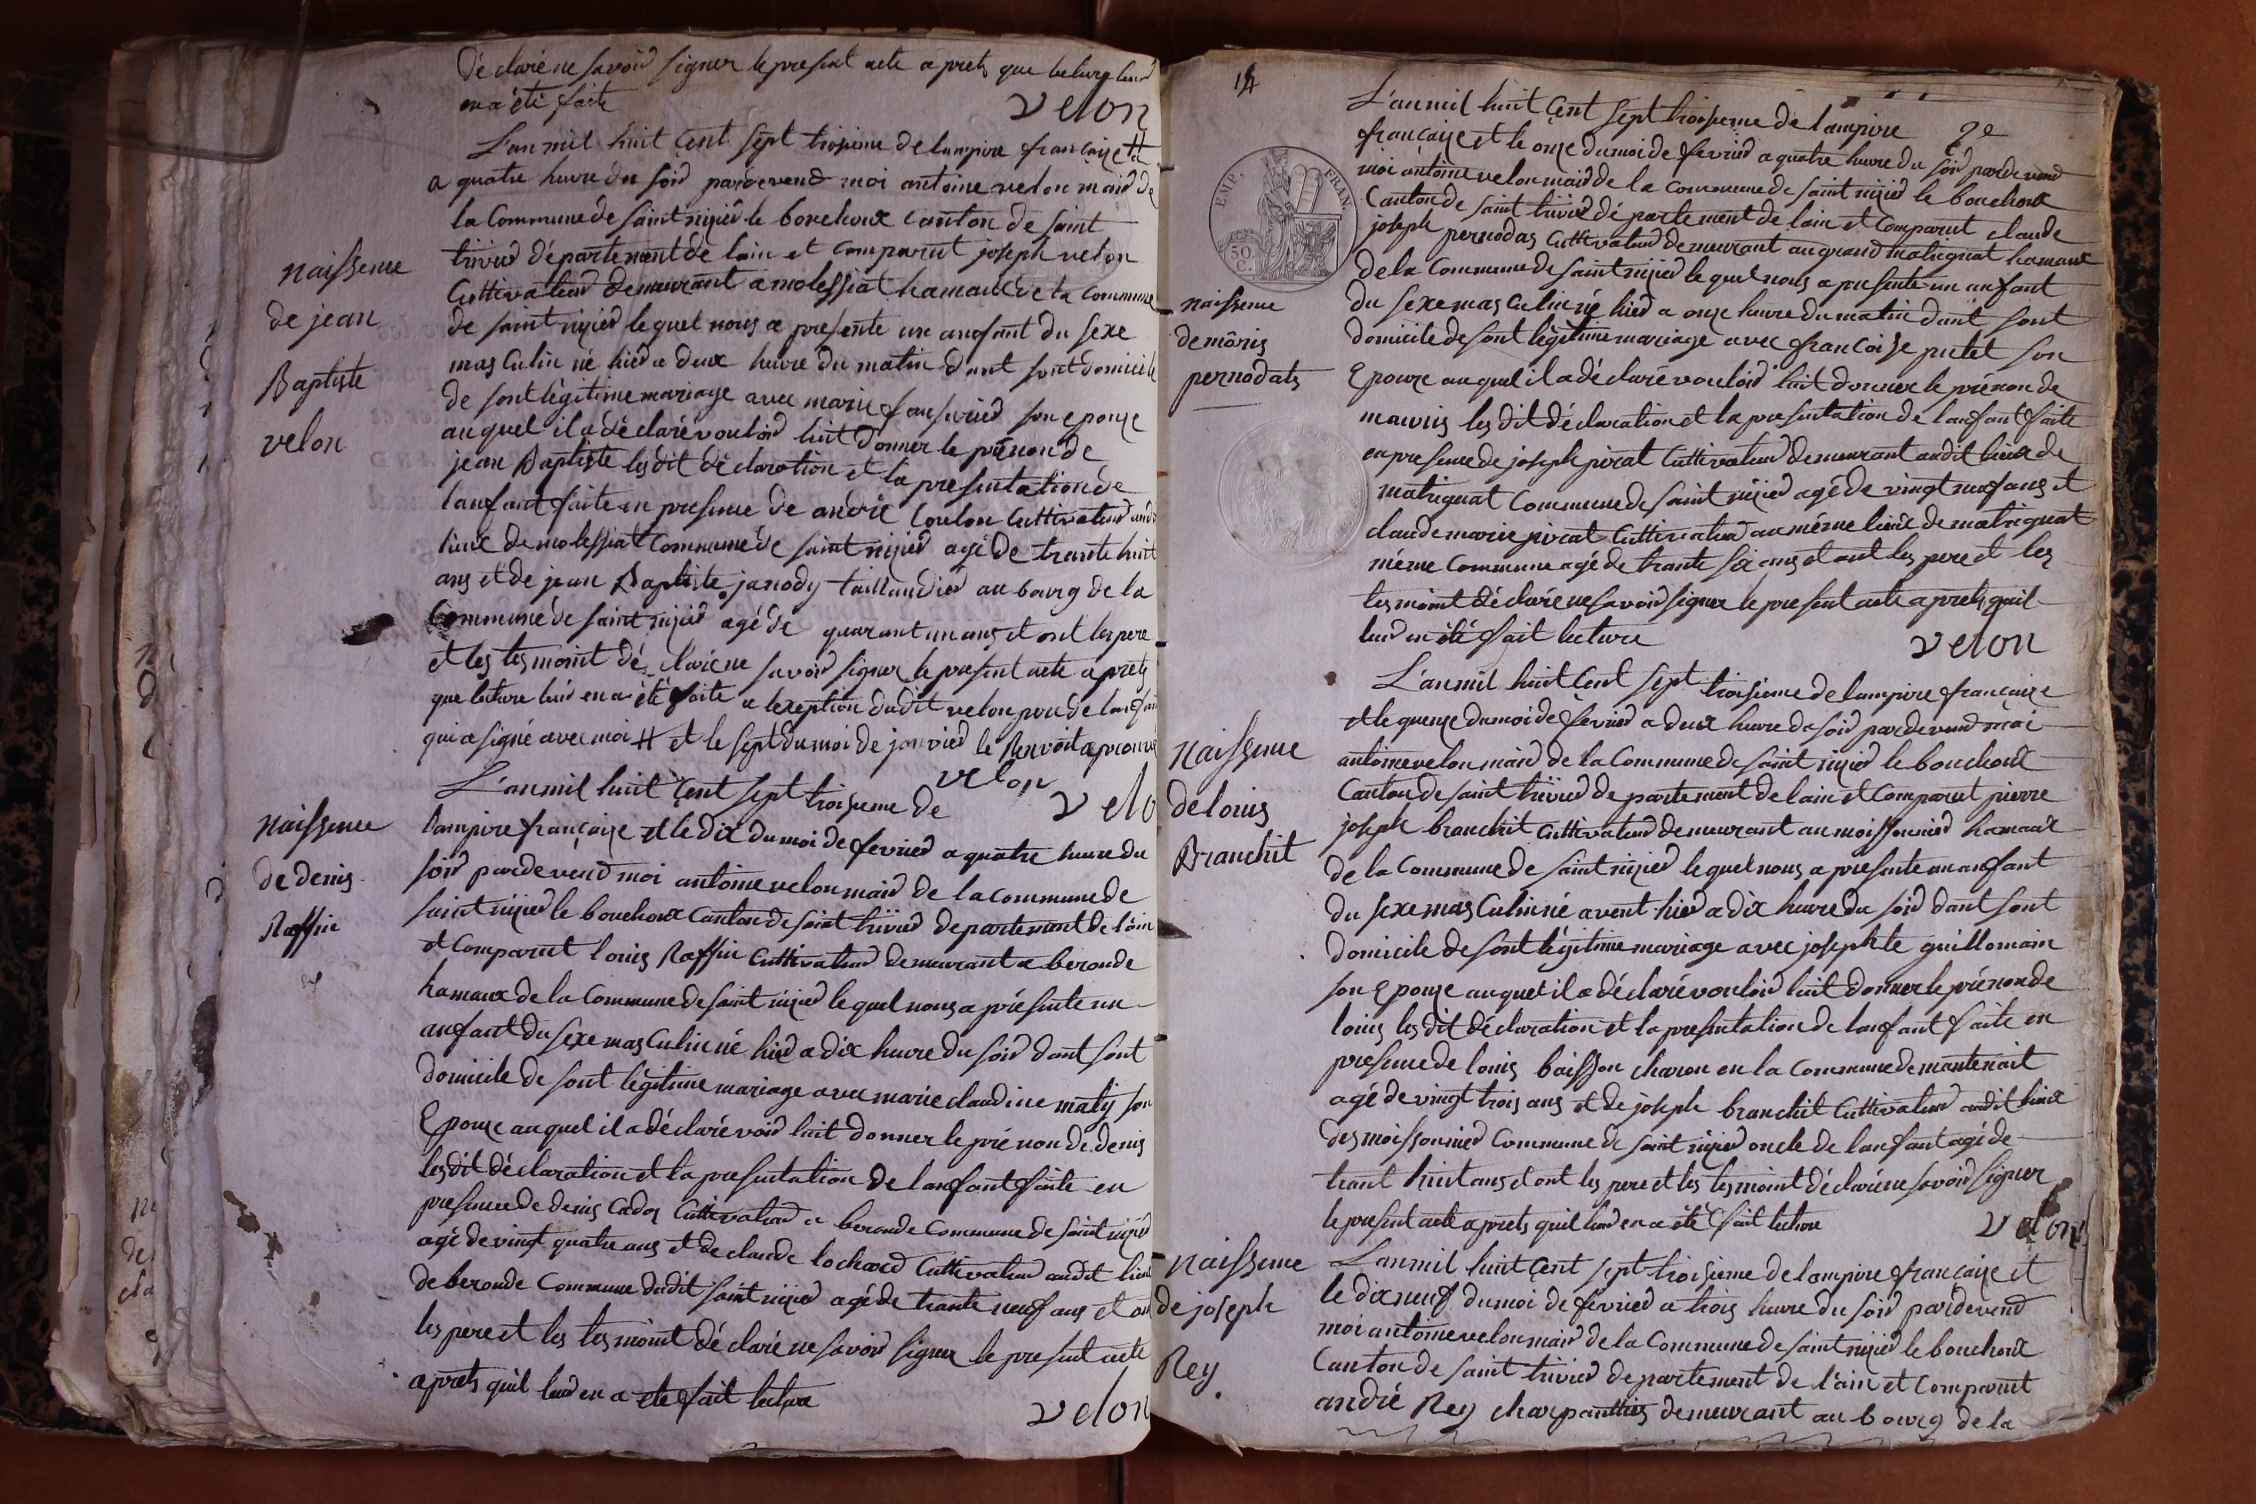 déclaré ne savoir signer le present acte aprets que lecture leur
en a été faite
velon
L'an mil huit cent sept troisieme de lampire françaize #
a quatre huure du soir pardevend moi antoine velon maid de
la Commune de saint nizied le bouchoux canton de saint
trivied département de lain et comparut joseph velon
Cultivateur demeurant a molessiat hamaux de la commune
de saint nizied le quel nous a presente un anfant du sexe
masculin né hied a deux huure du matin dont sont domicile
de sont légitime mariage avec marie son epouze
au quel il a déclaré vouloir luit donner le prénon de
jean Baptiste les dit déclaration et la presentation de
lanfant faite en presence de andré Coulon Cultivateur
lieux de molessiat Commune de saint nizied agé de trante huit
ans et de jean Baptiste janody taillandied au bourg de la
Commune de saint nizied agé de quarant un ans et ont les pere
et les tesmoint déclaré ne savoir signer le present acte aprets
que lecture leur en a été faite a lexeption dudit velon pere de lanfan
qui a signé avec moi # et le sept du moi de janvied le Renvoit aprouvé
velon
velo
naissence
de jean
Baptiste
velon
L'an mil huit cent sept troisieme de
lampire françaize et le dix du moi de fevried a quatre huure du
soir pardevend moi antoine velon maid de la commune de
saint nizied le bouchoux Canton de saint trivied departement de lain
et Comparut louis Raffin Cultivateur demeurant a beronde
hamaux de la Commune de saint nizied le quel nous a présente un
anfant du sexe masculin né hied a dix huure du soir dont sont
domicile de sont légitime mariage avec marie claudine maty son
Epouze au quel il a déclaré voir luit donner le prénon de denis
les dit déclaration et la presentation de lanfant faite en
presence de denis Cadoz Cultivateur a beronde Commune de saint nizied
agé de vingt quatre ans et de claude lochard Cultivateur audit lieux
de beronde Commune dudit saint nizied agé de trante neuf ans et ont
les pere et les tesmoint déclaré ne savoir signer le present acte
aprets quil leur en a eté fait lecture
velon
naissence
de denis
Raffin
14
L'an mil huit cent sept troisieme de lampire
françaize et le onze du moi de fevried a quatre huure du soir pardevend
moi antoine velon maid de la Commune de saint nizied le bouchoux
Canton de saint trivied département de lain et Comparut claude
joseph pernodas Cultivateur demeurant au grand matrignat hamaux
de la Commune de saint nizied le quel nous a presente un anfant
du sexe masculin né hied a onze huure du matin dont sont
domicile de sont légitime mariage avec francoise putet son
Epouze au quel il a déclaré vouloir luit donner le prénon de
mauris les dit déclaration et la presentation de lanfant faite
en presence de joseph pirat Cultivateur demeurant audit lieux de
matrignat Commune de saint nizied agé de vingt neuf ans et
claude marie pirat Cultivateur au méme lieux de matrignat
méme Commune agé de trante six ans et ont les pere et les
tesmoint déclaré ne savoir signer le present acte aprets quil
leur en été fait lecture
velon
EMP. FRAN.
50 C.
naissence
de môris
pernodats
L'an mil huit cent sept troisieme de lampire françaize
et le quenze du moi de fevried a deux huure de soir pardevend moi
antoine velon maid de la Commune de saint nizied le bouchoux
Canton de saint trivied departement de lain et Comparut pierre
joseph branchit Cultivateur demeurant au moissonnied hamaux
de la Commune de saint nizied le quel nous a presente un anfant
du sexe masculin né avent hied a dix huure du soir dont sont
domicile de sont légitime mariage avec josephte guillomain
son Epouze au quel il a déclaré vouloir luit donner le prénon de
louis les dit déclaration et la presentation de lanfant faite en
presence de louis baisson charon en la Commune de mantenait
agé de vingt trois ans et de joseph branchit Cultivateur audit lieux
des moissonnied Commune de saint nizied oncle de lanfant agé de
trant huit ans et ont les pere et les tesmoint déclaré ne savoir signer
le present acte aprets quil leur en a été fait lecture
velon
naissence
de louis
Branchit
L'an mil huit cent sept troisieme de lampire françaize et
le dix neuf du moi de fevried a trois huure du soir pardevend
moi antoine velon maid de la Commune de saint nizied le bouchoux
Canton de saint trivied departement de lain et Comparut
andré Rey charpanttier demeurant au bourg de la
naissence
de joseph
Rey